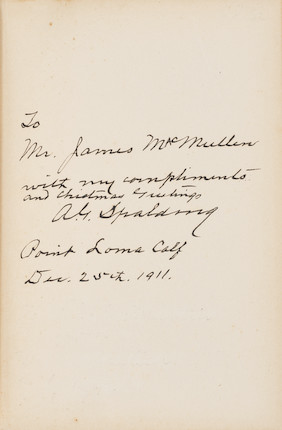 To
Mr. James McMullen
with my compliments
and Christmas Greetings
A.G. Spalding
Point Loma Calf
Dec. 25th. 1911.